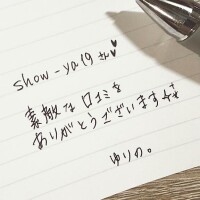 show-ya19さん♥♥
素敵な口コミを
ありがとうございます
ゆりの。